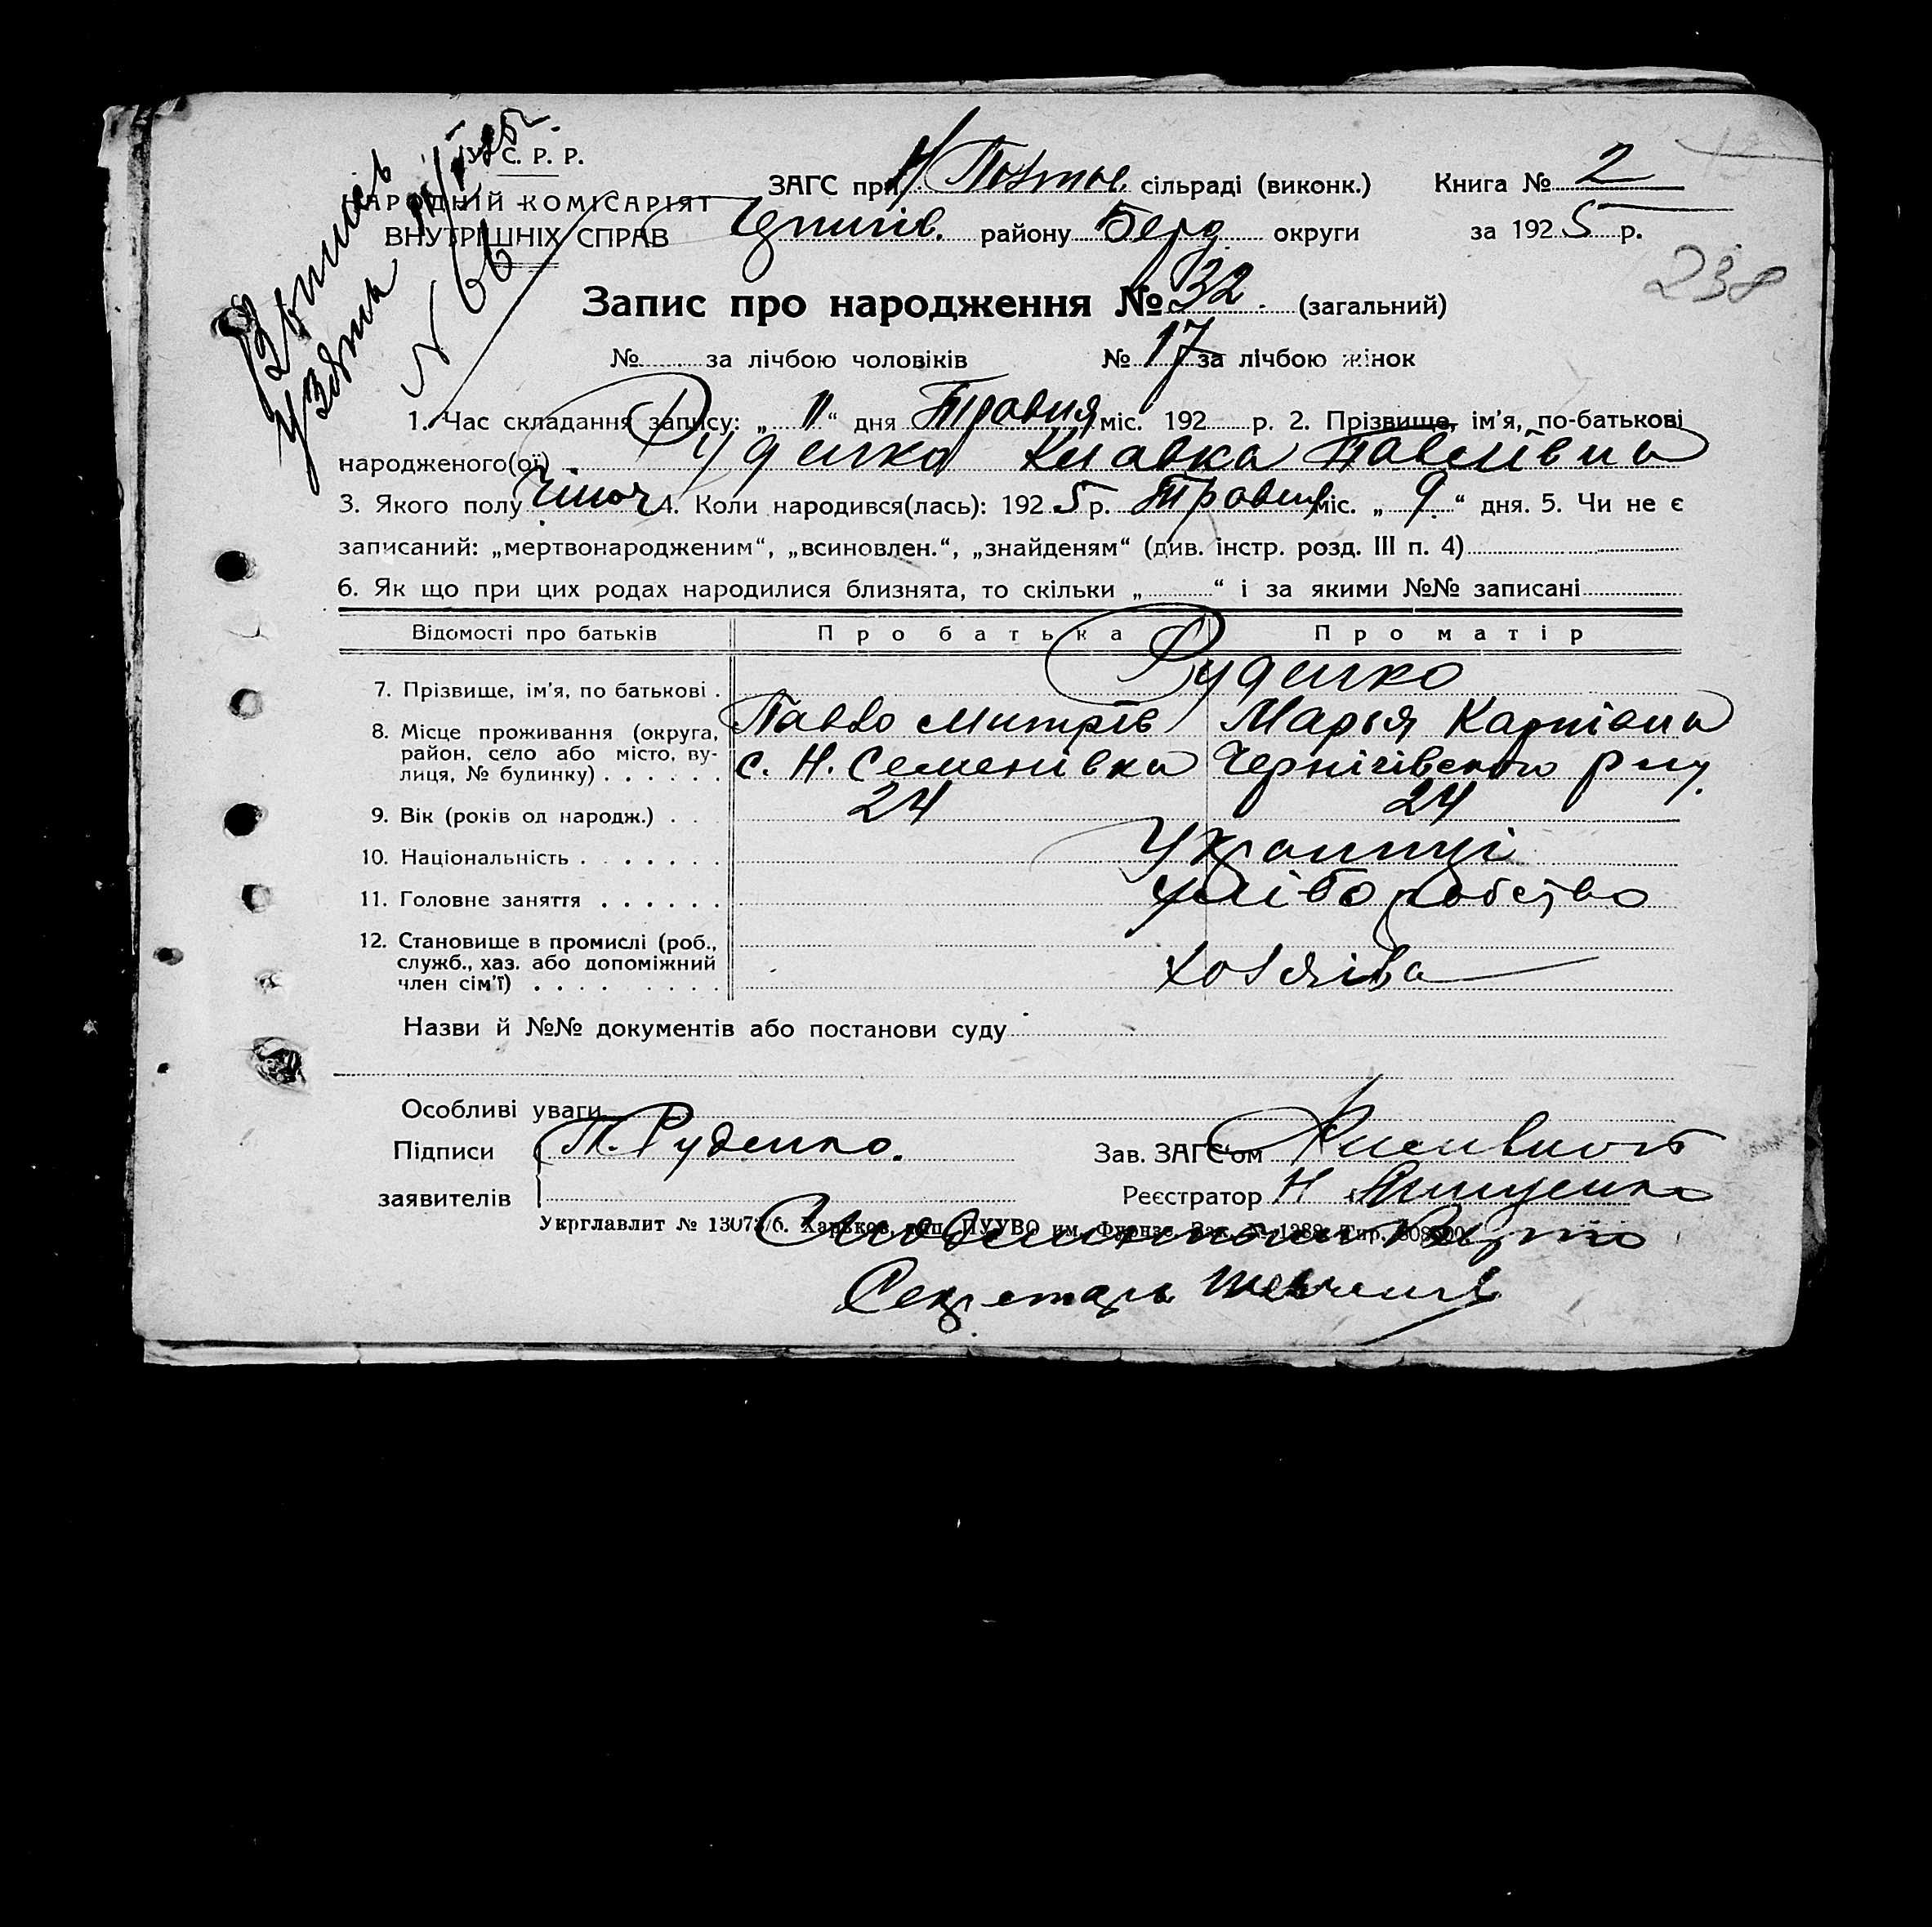 У. С. Р. Р.
НАРОДНІЙ КОМІСАРІЯТ
ВНУТРІШНІХ СПРАВ
Выпись
узята
N 66
ЗАГС при сільраді (виконк.) Книга № 2
району Берд. округи за 1925 р.
238
Запис про народження № 32. (загальний)
№ за лічбою чоловіків № 17 за лічбою жінок
1. Час складання запису: „ 11 “ дня Травня міс. 192 р. 2. Прізвище, ім'я, по-батькові
народженого(ої) Руденко Клавка Павлівна
3. Якого полу жіноч. 4. Коли народився(лась): 1925 р. Травня міс. „ 9 “ дня. 5. Чи не є
записаний: „мертвонародженим“, „всиновлен.“, „знайденям“ (див. інстр. розд. III п. 4)
6. Як що при цих родах народилися близнята, то скільки „ “ і за якими №№ записані
Відомості про батьків Про батька Про матір
7. Прізвище, ім'я, по батькові . Руденко
Павло Митрів Марья Карпівна
8. Місце проживання (округа, район, село або місто, вулиця, № будинку) . . . . . . с. Н. Семенівка Чернігівського р-ну.
9. Вік (років од народж.) . . . 24 24
10. Національність . . . . . . . Українці
11. Головне заняття . . . . . . хліборобство
12. Становище в промислі (роб., служб., хаз. або допоміжний член сім'ї) . . . . . . . . . хозяіва
Назви й №№ документів або постанови суду
Особливі уваги
Підписи П. Руденко. Зав. ЗАГС'ом
заявителів Реєстратор
Укрглавлит № 13073/6. Харьков, тип. ПУУВО им. Фрунзе.
Секретарь